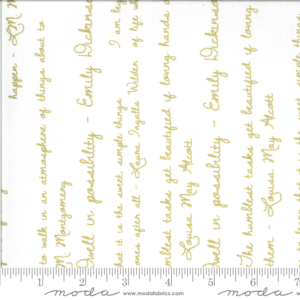 happen - LM M
to walk in an atmosphere of things about to
LM Montgomery
Dwell in possibility - Emily Dickins
that it is the sweet, simple things
ones after all - Laura Ingalls Wilder of life
mblest tasks get beautified if loving hands
Louisa May Alcott
Dwell in possibility - Emily Dickins
The humblest tasks get beautified if loving
them - Louisa May Alcott
1 2 3 4 5 6 7
moda www.modafabrics.com moda